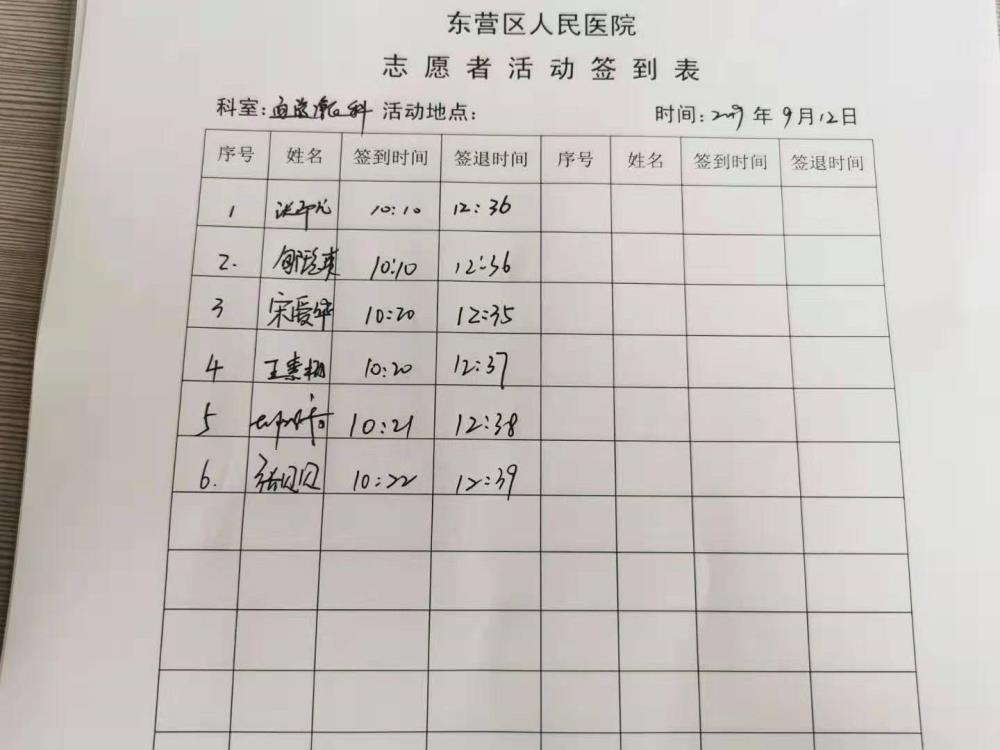 东营区人民医院
志愿者活动签到表
科室: 科 活动地点: 时间: 2019年9月12日
序号 姓名 签到时间 签退时间 序号 姓名 签到时间 签退时间
1 10:10 12:36
2. 10:10 12:36
3 宋爱华 10:20 12:35
4 王素 10:20 12:37
5 10:21 12:38
6. 张贝贝 10:22 12:39